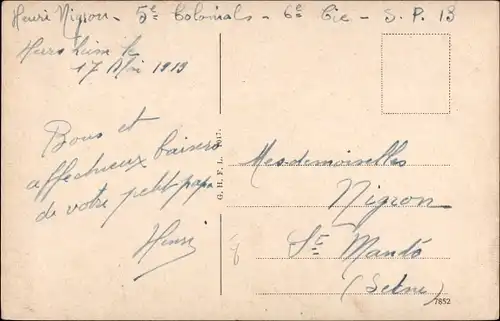 Henri Nigron - 5e Colonials - 6e Cie - S.P. 13
le
17 Mai 1919
Bons et
affectueux baisers
de votre petit papa
Henri
G. H. F. L. 1917.
Mesdemoiselles
Nigron
St Mandé
(Seine)
7852